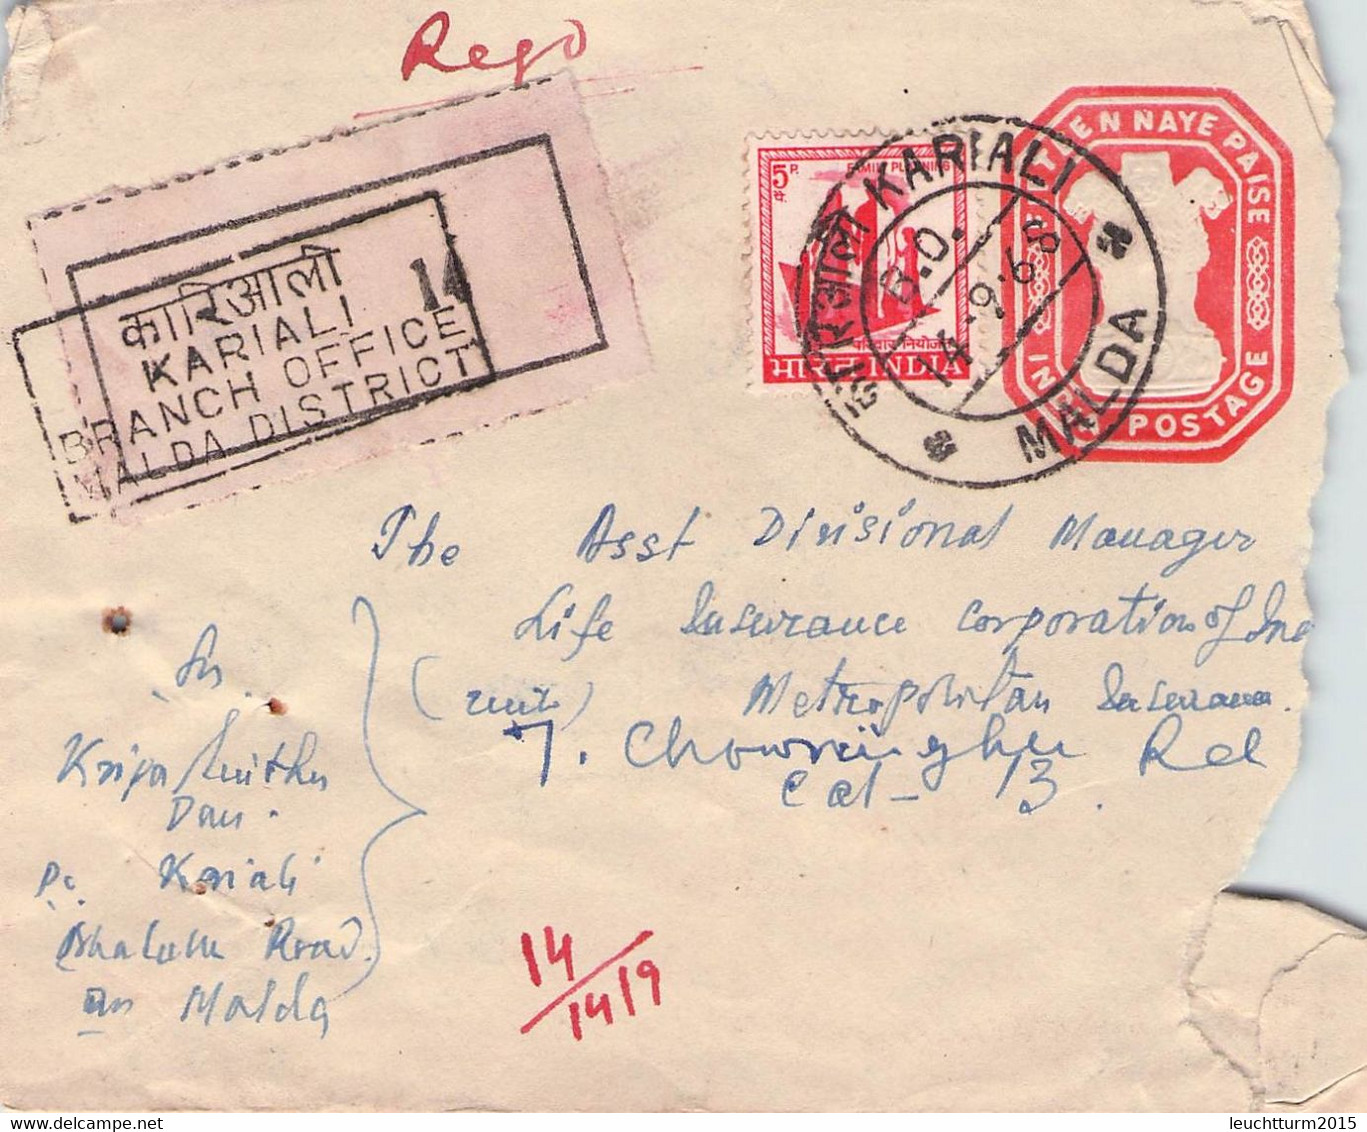 Rego
कारिआली 14
KARIALI
BRANCH OFFICE
MALDA DISTRICT
5 P.
FAMILY PLANNING
परिवार नियोजन
भारत INDIA
KARIALI
B.O.
14-9-68
MALDA
TEN NAYE PAISE
POSTAGE
The Asst Divisional Manager
Life Insurance Corporation of
(unit) Metropolitan Insurance.
7. Chowringhee Rd
Cal- 13.
Kariali
Road
Malda
14
14/9
leuchtturm2015